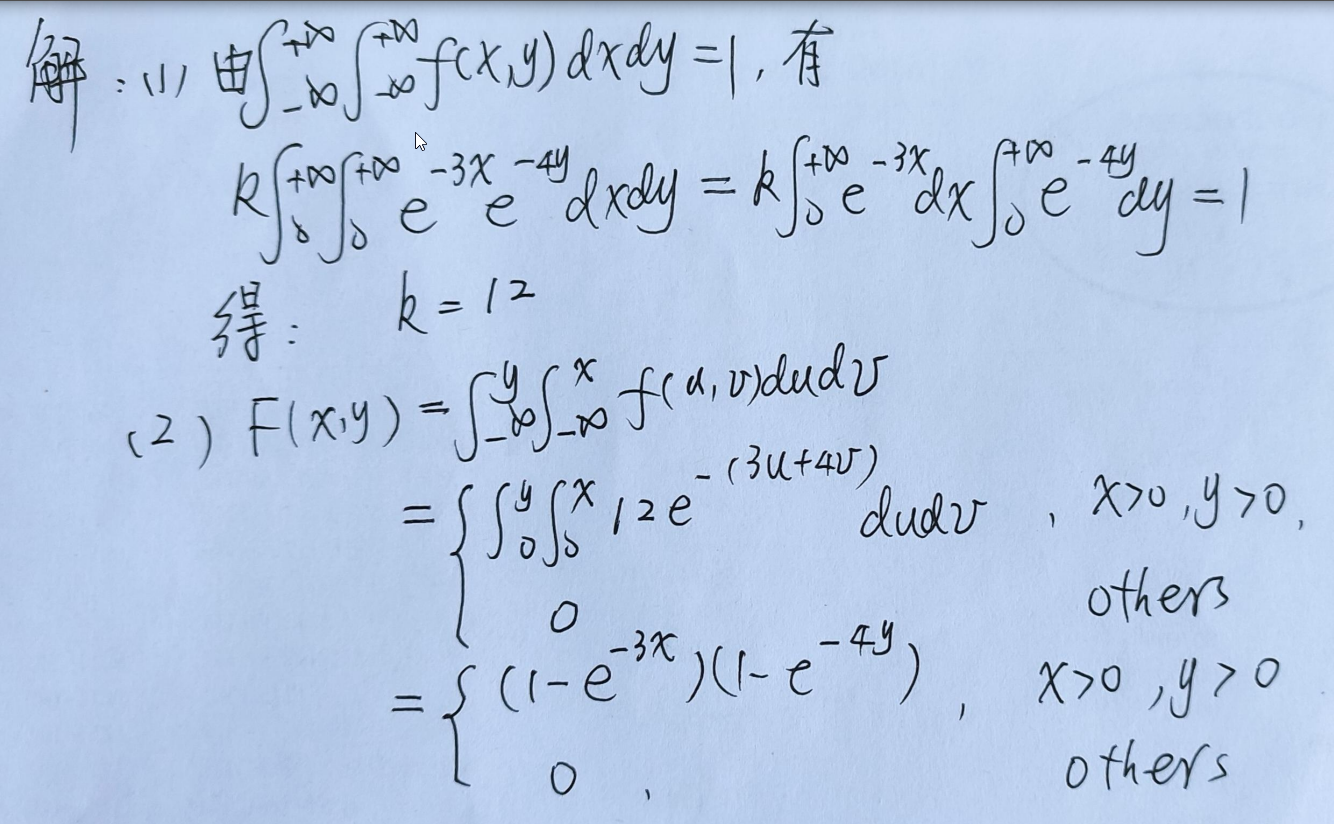 解：(1) 由∫_{-∞}^{+∞}∫_{-∞}^{+∞}f(x,y)dxdy=1，有
k∫_0^{+∞}∫_0^{+∞}e^{-3x}e^{-4y}dxdy=k∫_0^{+∞}e^{-3x}dx∫_0^{+∞}e^{-4y}dy=1
得： k=12
(2) F(x,y)=∫_{-∞}^{y}∫_{-∞}^{x}f(u,v)dudv
={∫_0^y∫_0^x 12e^{-(3u+4v)}dudv , x>0,y>0,
0 others
={(1-e^{-3x})(1-e^{-4y}), x>0,y>0
0, others